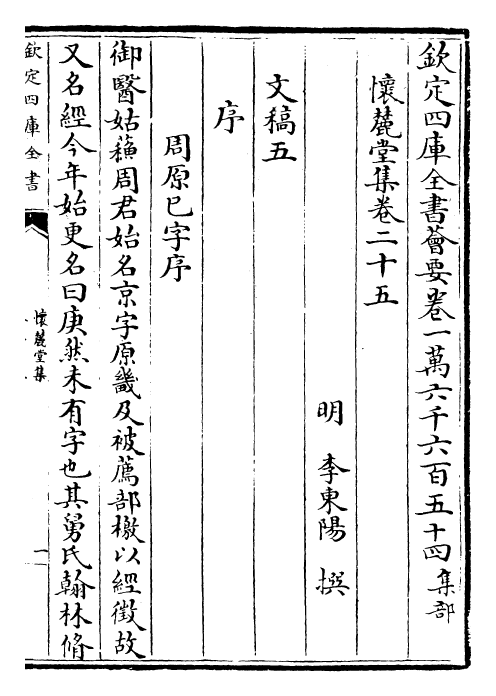 欽定四庫全書薈要卷一萬六千六百五十四集部
懷麓堂集卷二十五
明 李東陽 撰
文稿五
序
周原已字序
御醫姑蘓周君始名京字原畿及被薦部檄以經徵故
又名經今年始更名曰庚然未有字也其舅氏翰林脩
欽定四庫全書
懷麓堂集
一